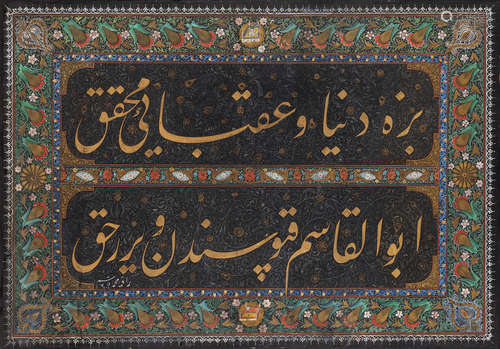 بزه دنیا و عقبایی محقق
ابوالقاسم قپوسندن ویرر حق